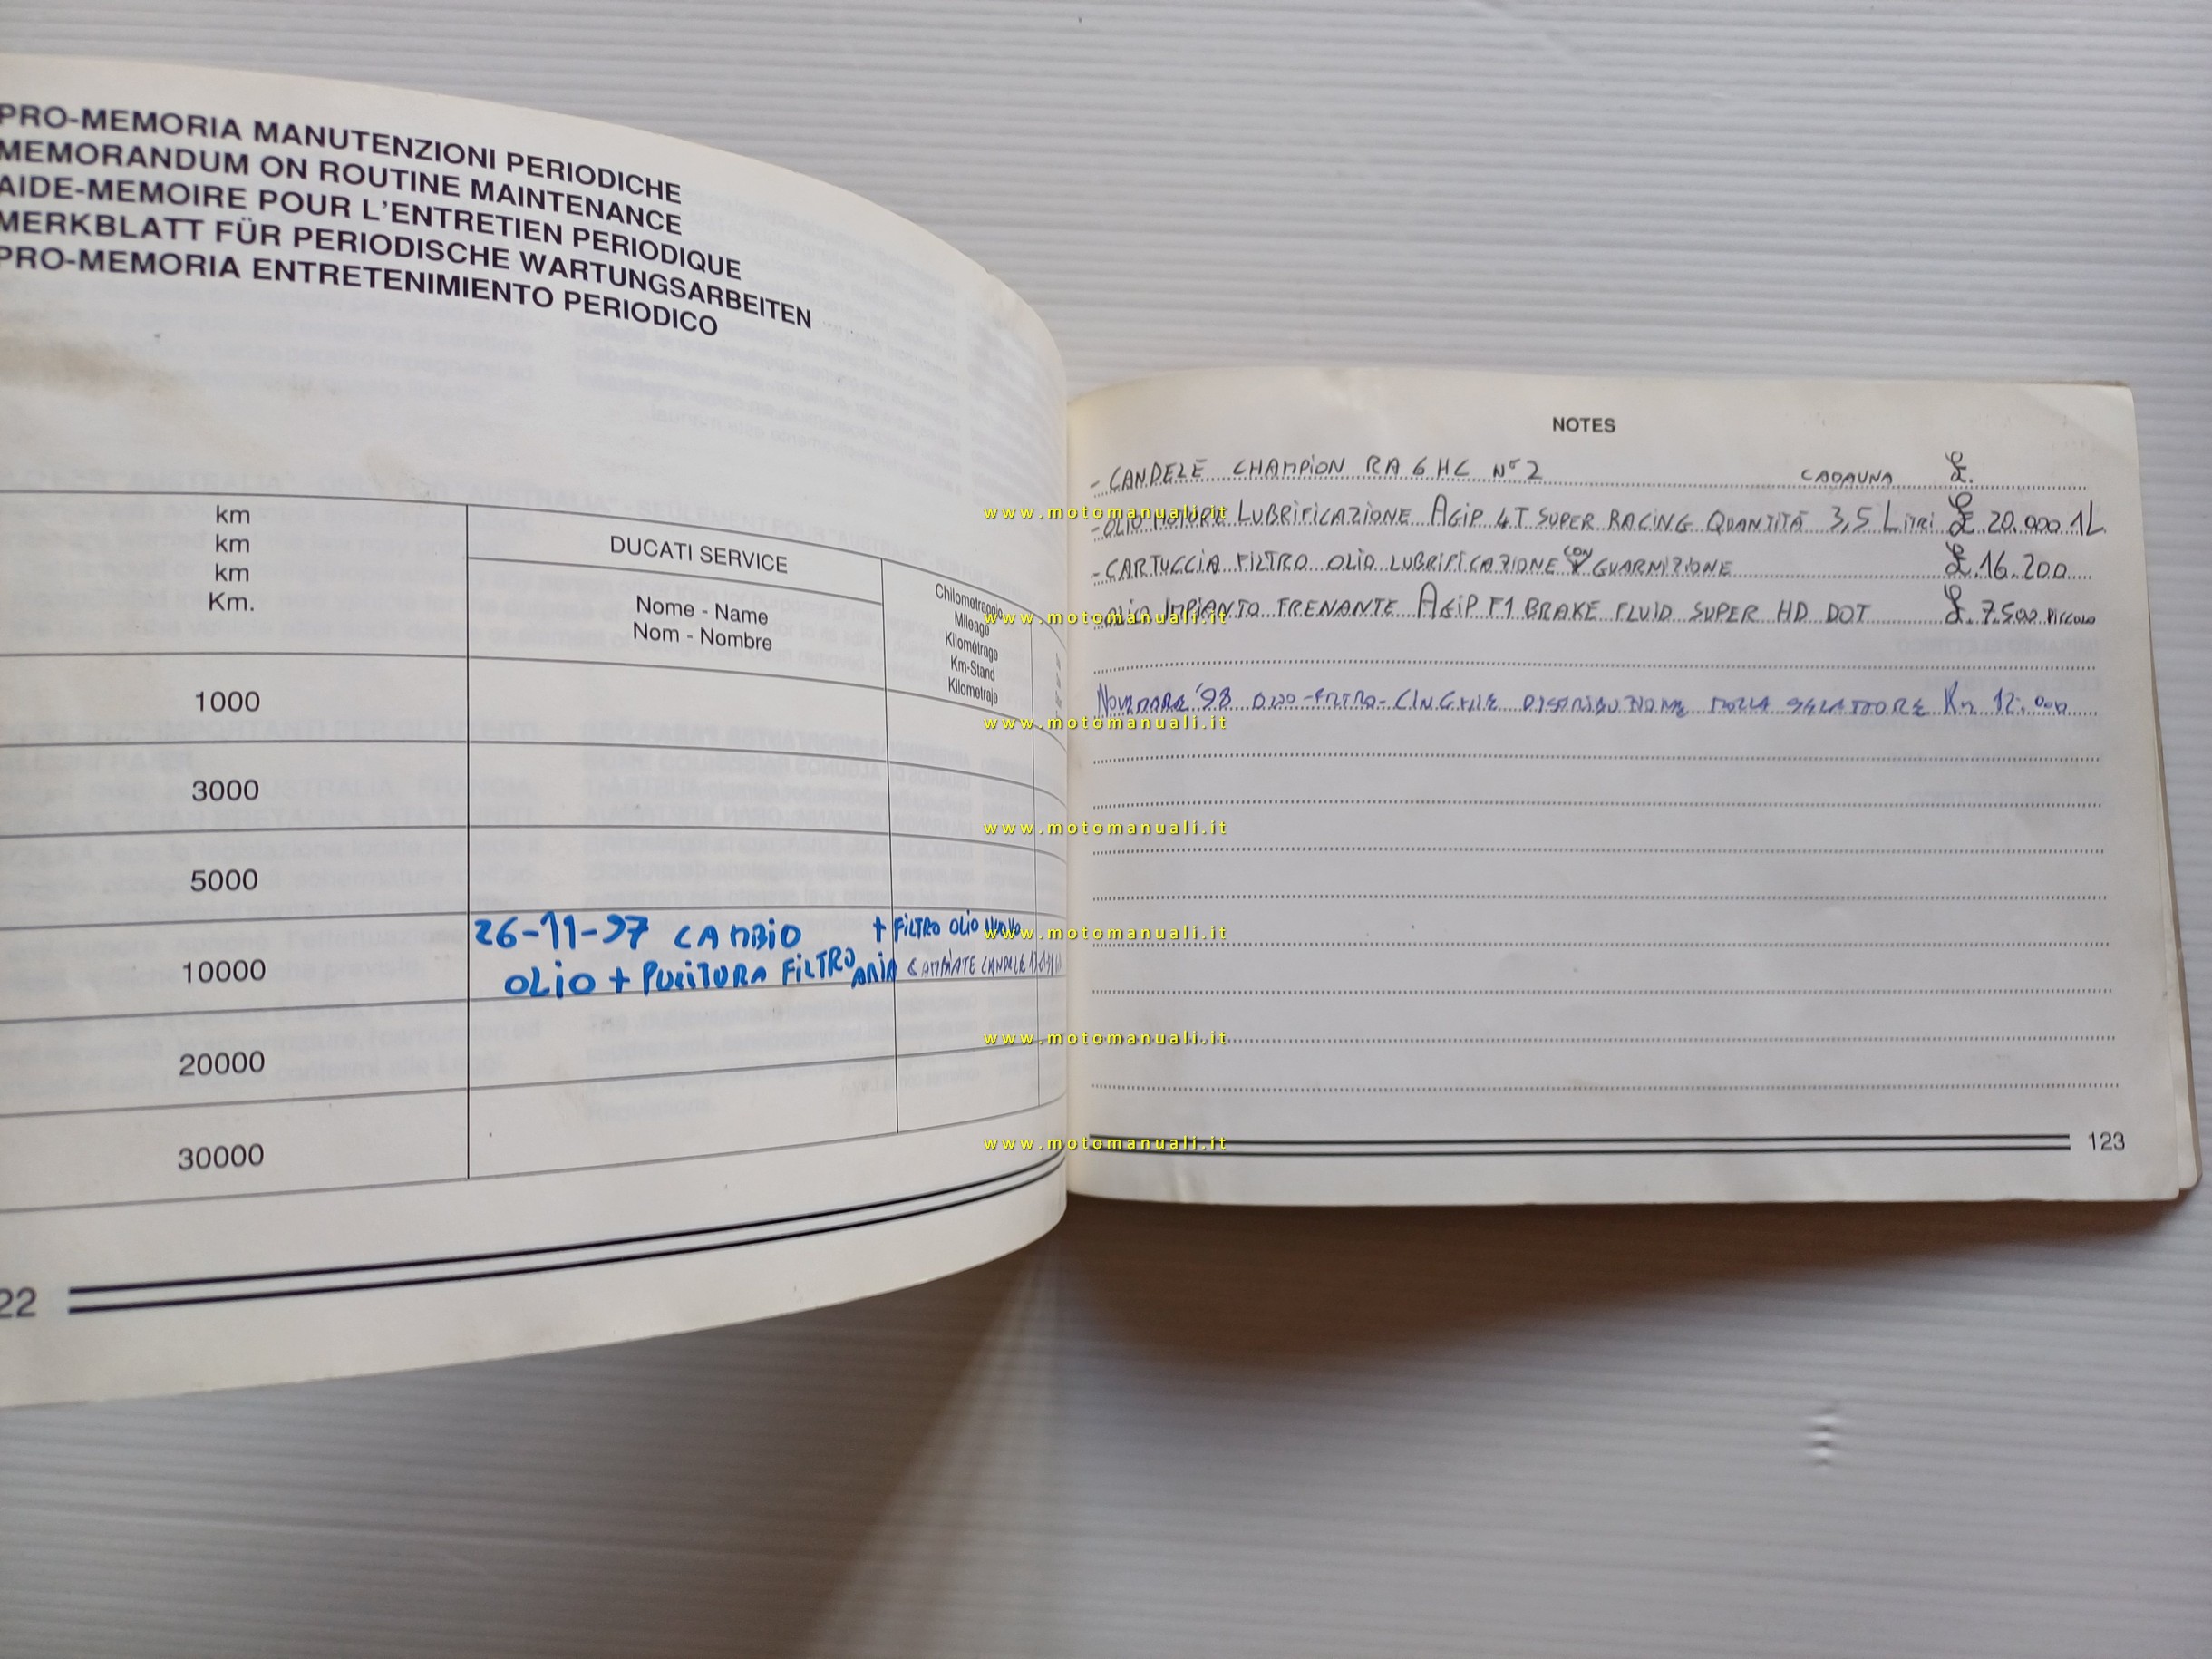 PRO-MEMORIA MANUTENZIONI PERIODICHE
MEMORANDUM ON ROUTINE MAINTENANCE
AIDE-MEMOIRE POUR L'ENTRETIEN PERIODIQUE
MERKBLATT FÜR PERIODISCHE WARTUNGSARBEITEN
PRO-MEMORIA ENTRETENIMIENTO PERIODICO
km
km
km
Km.
DUCATI SERVICE
Nome - Name
Nom - Nombre
Chilometraggio
Mileage
Kilométrage
Km-Stand
Kilometraje
1000
3000
5000
10000
26-11-97 CAMBIO + FILTRO OLIO NUOVO
OLIO + PULITURA FILTRO ARIA CAMBIATE CANDELE
20000
30000
22
NOTES
- CANDELE CHAMPION RA 6 HC N° 2 CADAUNA £.
- OLIO MOTORE LUBRIFICAZIONE AGIP 4T SUPER RACING QUANTITÀ 3,5 LITRI £. 20.000 1L
- CARTUCCIA FILTRO OLIO LUBRIFICAZIONE CON GUARNIZIONE £. 16.200
- OLIO IMPIANTO FRENANTE AGIP F1 BRAKE FLUID SUPER HD DOT £. 7.500 PICCOLO
NOVEMBRE '98 OLIO - FILTRO - CINGHIE DISTRIBUZIONE Km 12.000
123
www.motomanuali.it
www.motomanuali.it
www.motomanuali.it
www.motomanuali.it
www.motomanuali.it
www.motomanuali.it
www.motomanuali.it